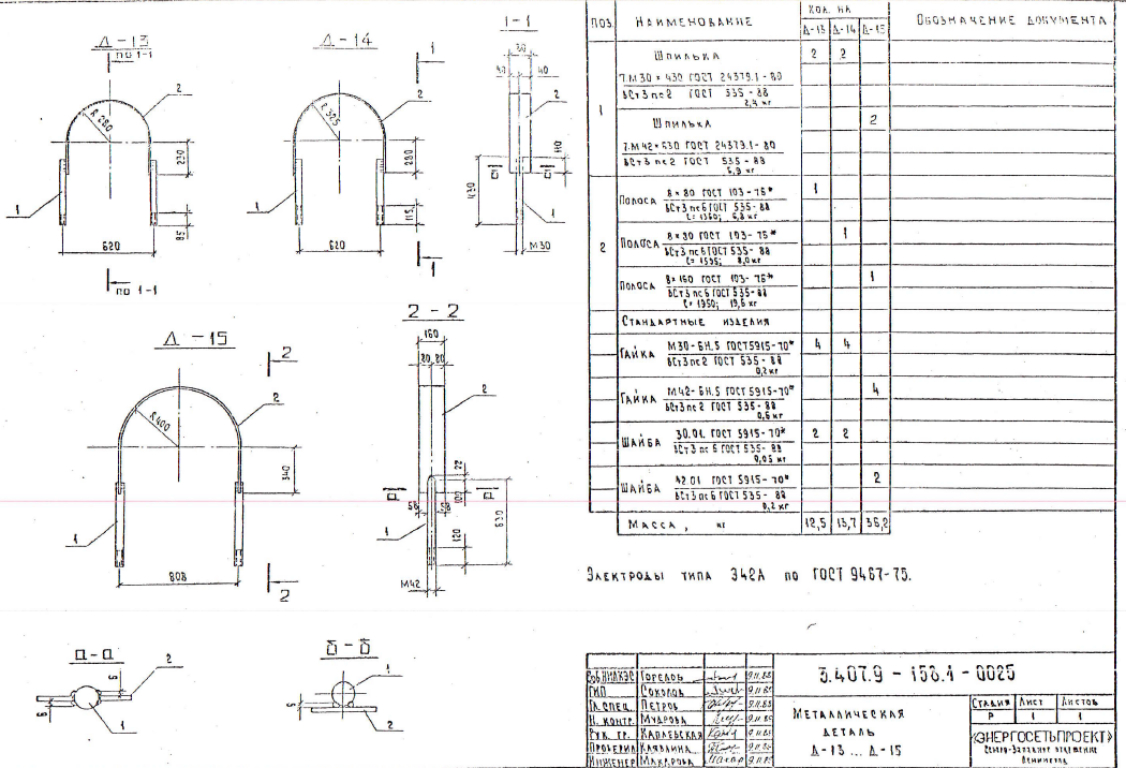 Д-13
по 1-1
2
R 280
230
1
85
620
по 1-1
Д-14
1
2
R 325
280
1
115
620
1
1-1
80
40 40
2
110
430
1
М30
Д-15
2
2
R400
340
1
808
2
2-2
160
80 80
2
22
100
58 58
630
1
120
М42
а-а
2
6
6
1
б-б
1
6
2
ПОЗ. НАИМЕНОВАНИЕ КОЛ. НА ОБОЗНАЧЕНИЕ ДОКУМЕНТА
Д-13 Д-14 Д-15
1
ШПИЛЬКА 2 2
7.М30×430 ГОСТ 24379.1-80
ВСт3пс2 ГОСТ 535-88
2,4 кг
ШПИЛЬКА 2
7.М42×630 ГОСТ 24379.1-80
ВСт3пс2 ГОСТ 535-88
6,9 кг
2
ПОЛОСА 8×80 ГОСТ 103-76* 1
ВСт3пс6 ГОСТ 535-88
ℓ=1360; 6,8 кг
ПОЛОСА ГОСТ 103-76* 1
ВСт3пс6 ГОСТ 535-88
ℓ=1595; 8,0 кг
ПОЛОСА 8×160 ГОСТ 103-76* 1
ВСт3пс6 ГОСТ 535-88
ℓ=1950; 19,6 кг
СТАНДАРТНЫЕ ИЗДЕЛИЯ
ГАЙКА М30-6Н.5 ГОСТ 5915-70* 4 4
ВСт3пс2 ГОСТ 535-88
0,2 кг
ГАЙКА М42-6Н.5 ГОСТ 5915-70* 4
ВСт3пс2 ГОСТ 535-88
0,6 кг
ШАЙБА 30.01 ГОСТ 5915-70* 2 2
ВСт3пс6 ГОСТ 535-88
0,05 кг
ШАЙБА 42.01 ГОСТ 5915-70* 2
ВСт3пс6 ГОСТ 535-88
0,2 кг
МАССА, кг 12,5 13,7 36,2
ЭЛЕКТРОДЫ ТИПА Э42А ПО ГОСТ 9467-75.
3.407.9 - 158.1 - 0025
ГОРЕЛОВ
ГИП СОКОЛОВ
ГЛ. СПЕЦ. ПЕТРОВ
Н. КОНТР. МУДРОВА
РУК. ГР.
ПРОВЕРИЛ
ИНЖЕНЕР МАКАРОВА
МЕТАЛЛИЧЕСКАЯ
ДЕТАЛЬ
Д-13 ... Д-15
СТАДИЯ ЛИСТ ЛИСТОВ
Р 1 1
«ЭНЕРГОСЕТЬПРОЕКТ»
СЕВЕРО-ЗАПАДНОЕ ОТДЕЛЕНИЕ
ЛЕНИНГРАД